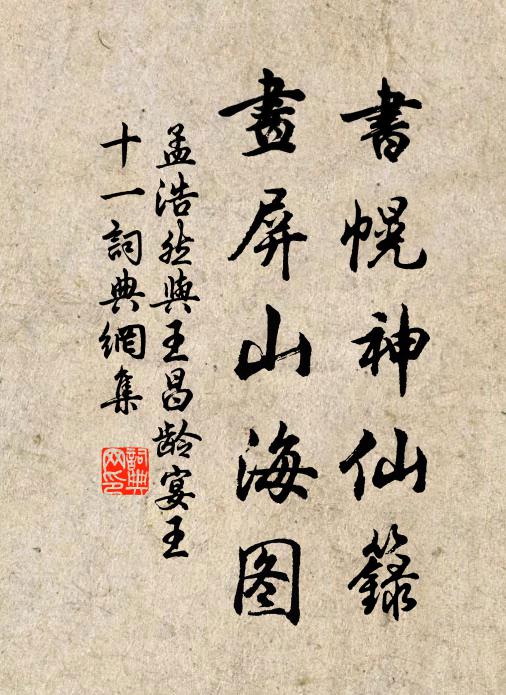 書幌神仙籙
畫屏山海图
孟浩然與王昌龄宴王
十一詞典網集
詞典网印